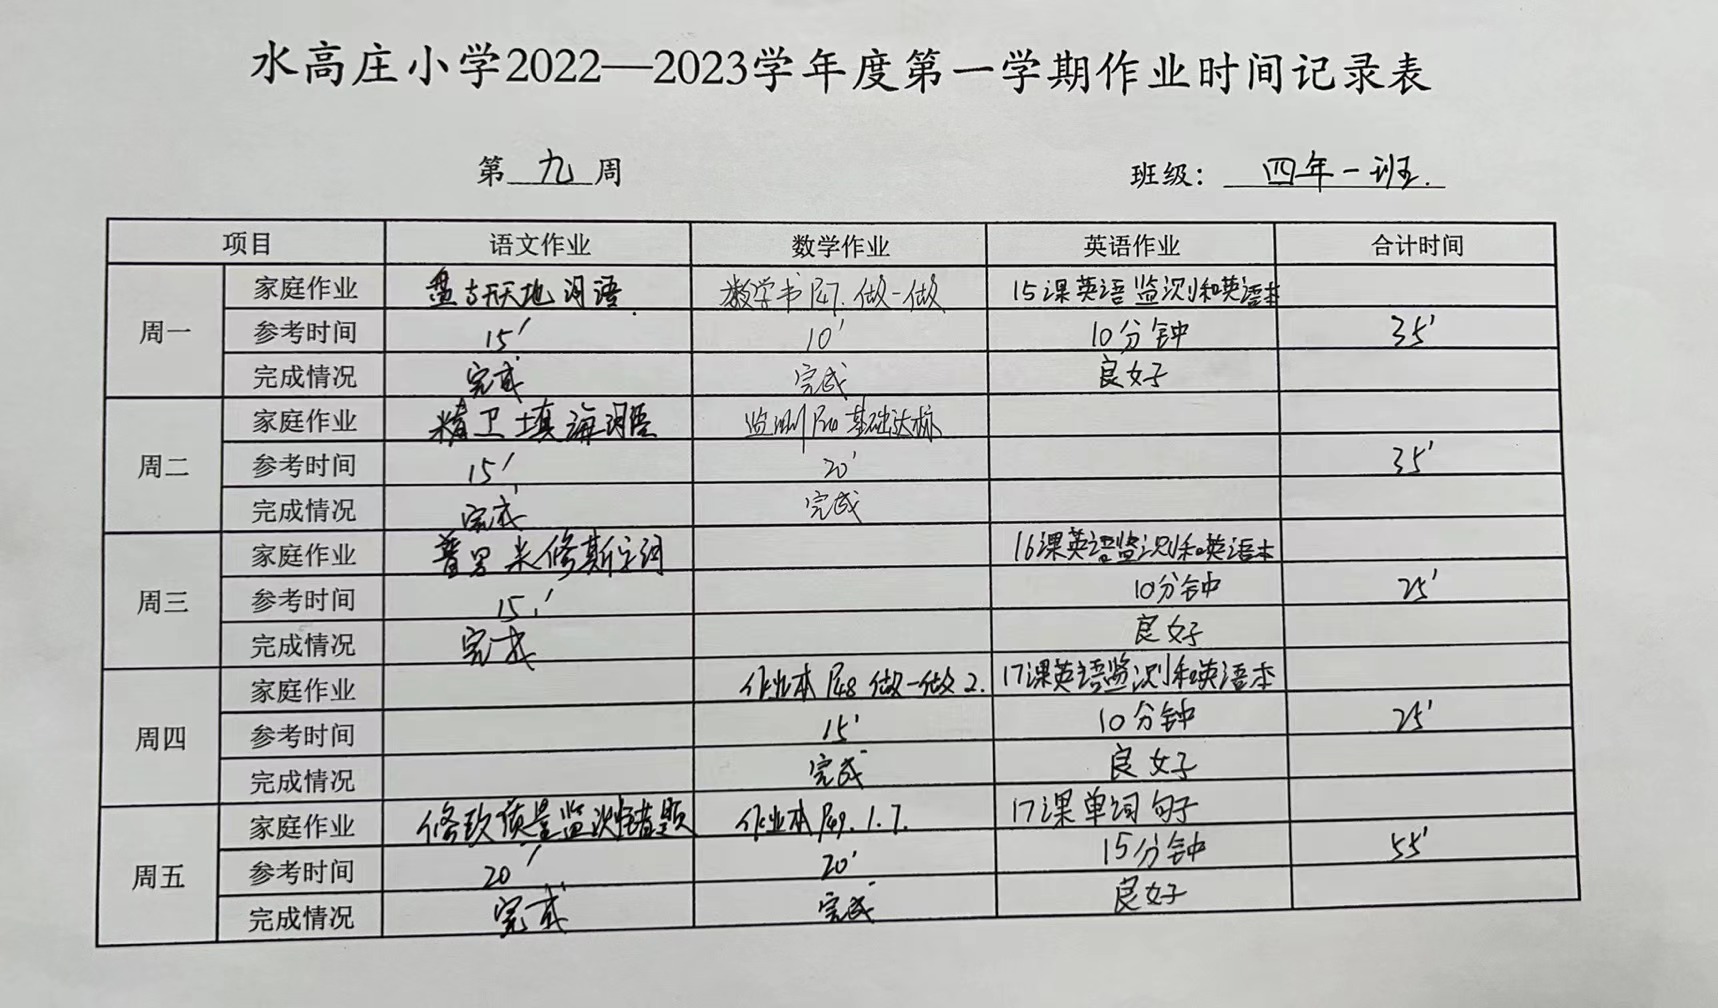 水高庄小学2022—2023学年度第一学期作业时间记录表
第 九 周 班级: 四年一班.
项目 语文作业 数学作业 英语作业 合计时间
周一 家庭作业 盘古开天地 词语. 数学书P47. 做一做 15课英语监测和英语本
参考时间 15′ 10′ 10分钟 35′
完成情况 完成 完成 良好
周二 家庭作业 精卫填海词语 监测P40基础达标
参考时间 15′ 20′ 35′
完成情况 完成 完成
周三 家庭作业 普罗米修斯字词 16课英语监测和英语本
参考时间 15′ 10分钟 25′
完成情况 完成 良好
周四 家庭作业 作业本P48 做一做2. 17课英语监测和英语本
参考时间 15′ 10分钟 25′
完成情况 完成 良好
周五 家庭作业 修改质量监测错题 作业本P49.1.7. 17课单词 句子
参考时间 20′ 20′ 15分钟 55′
完成情况 完成 完成 良好